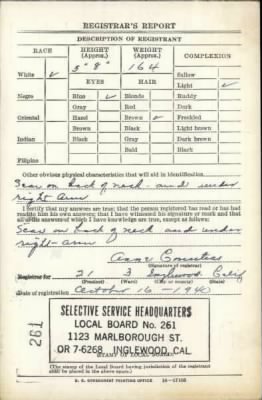 REGISTRAR'S REPORT
DESCRIPTION OF REGISTRANT
RACE HEIGHT (Approx.) WEIGHT (Approx.) COMPLEXION
5' 8" 164
White ✓ Sallow
EYES HAIR Light ✓
Negro Blue ✓ Blonde Ruddy
Gray Red Dark
Oriental Hazel Brown ✓ Freckled
Brown Black Light brown
Indian Black Gray Dark brown
Bald Black
Filipino
Other obvious physical characteristics that will aid in identification
Scar on back of neck and under
right arm
I certify that my answers are true; that the person registered has read or has had
read to him his own answers; that I have witnessed his signature or mark and that
all of his answers of which I have knowledge are true, except as follows:
Scar on back of neck and under
right arm
Anne
(Signature of registrar)
Registrar for 21 3 Inglewood Calif
(Precinct) (Ward) (City or county) (State)
Date of registration October 16 - 1940
SELECTIVE SERVICE HEADQUARTERS
LOCAL BOARD No. 261
1123 MARLBOROUGH ST.
OR 7-6268 INGLEWOOD, CAL.
261
(STAMP OF LOCAL BOARD)
(The stamp of the Local Board having jurisdiction of the registrant
shall be placed in the above space.)
U. S. GOVERNMENT PRINTING OFFICE 16-17105